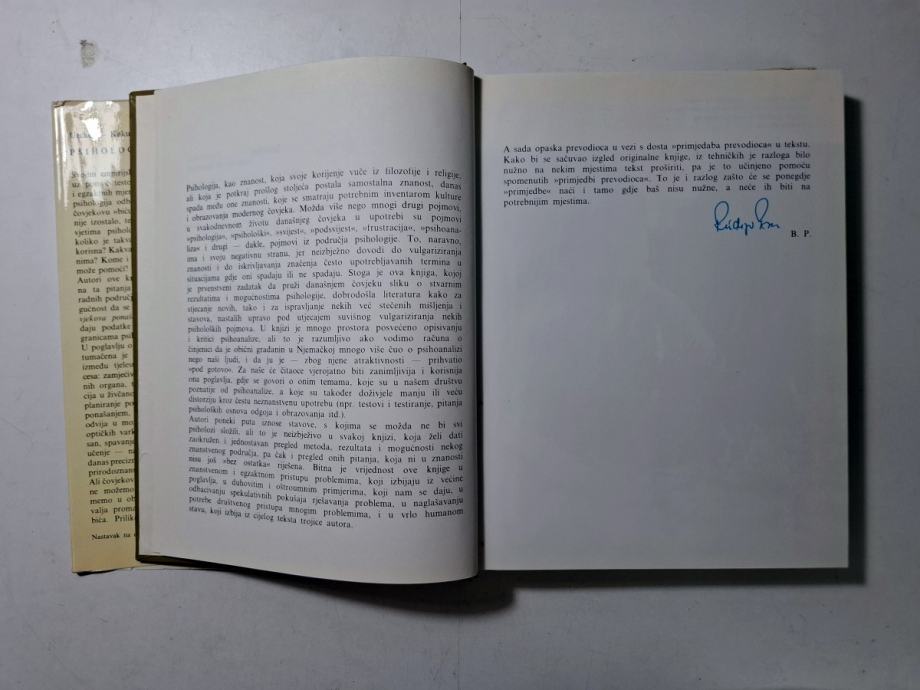 PSIHOLOG
uz pomoć testo
i egzaktnih mje
psihologija odb
čovjekovu »bić
nije izostalo, te
vjetima psiholo
koliko je takva
korisna? Kakva
nima? Kome i
može pomoći?
Autori ove k
na ta pitanja
radnih područj
gućnost da se
vjekova ponaš
daju podatke
granicama psi
U poglavlju o
tumačena je
između tjeles
cesa: zamjećiv
nih organa, t
cija u živčano
planiranje po
ponašanjem,
odvija u mo
optičkih vark
san, spavanje
učenje — na
danas precizn
prirodoznans
Ali čovjekov
ne možemo
memo u ob
valja proma
bića. Prilik
Nastavak na
Psihologija, kao znanost, koja svoje korijenje vuče iz filozofije i religije,
ali koja je potkraj prošlog stoljeća postala samostalna znanost, danas
spada među one znanosti, koje se smatraju potrebnim inventarom kulture
i obrazovanja modernog čovjeka. Možda više nego mnogi drugi pojmovi,
u svakodnevnom životu današnjeg čovjeka u upotrebi su pojmovi
»psihologija«, »psihološki«, »svijest«, »podsvijest«, »frustracija«, »psihoana-
liza« i drugi — dakle, pojmovi iz područja psihologije. To, naravno,
ima i svoju negativnu stranu, jer neizbježno dovodi do vulgariziranja
znanosti i do iskrivljavanja značenja često upotrebljavanih termina u
situacijama gdje oni spadaju ili ne spadaju. Stoga je ova knjiga, kojoj
je prvenstveni zadatak da pruži današnjem čovjeku sliku o stvarnim
rezultatima i mogućnostima psihologije, dobrodošla literatura kako za
stjecanje novih, tako i za ispravljanje nekih već stečenih mišljenja i
stavova, nastalih upravo pod utjecajem suvišnog vulgariziranja nekih
psiholoških pojmova. U knjizi je mnogo prostora posvećeno opisivanju
i kritici psihoanalize, ali to je razumljivo ako vodimo računa o
činjenici da je obični građanin u Njemačkoj mnogo više čuo o psihoanalizi
nego naši ljudi, i da ju je — zbog njene atraktivnosti — prihvatio
»pod gotovo«. Za naše će čitaoce vjerojatno biti zanimljivija i korisnija
ona poglavlja, gdje se govori o onim temama, koje su u našem društvu
poznatije od psihoanalize, a koje su također doživjele manju ili veću
distorziju kroz čestu neznanstvenu upotrebu (npr. testovi i testiranje, pitanja
psiholoških osnova odgoja i obrazovanja itd.).
Autori poneki puta iznose stavove, s kojima se možda ne bi svi
psiholozi složili, ali to je neizbježivo u svakoj knjizi, koja želi dati
zaokružen i jednostavan pregled metoda, rezultata i mogućnosti nekog
znanstvenog područja, pa čak i pregled onih pitanja, koja ni u znanosti
nisu još »bez ostatka« riješena. Bitna je vrijednost ove knjige u
znanstvenom i egzaktnom pristupu problemima, koji izbijaju iz većine
poglavlja, u duhovitim i oštroumnim primjerima, koji nam se daju, u
odbacivanju spekulativnih pokušaja rješavanja problema, u naglašavanju
potrebe društvenog pristupa mnogim problemima, i u vrlo humanom
stavu, koji izbija iz cijelog teksta trojice autora.
A sada opaska prevodioca u vezi s dosta »primjedaba prevodioca« u tekstu.
Kako bi se sačuvao izgled originalne knjige, iz tehničkih je razloga bilo
nužno na nekim mjestima tekst proširiti, pa je to učinjeno pomoću
spomenutih »primjedbi prevodioca«. To je i razlog zašto će se ponegdje
»primjedbe« naći i tamo gdje baš nisu nužne, a neće ih biti na
potrebnijim mjestima.
B. P.